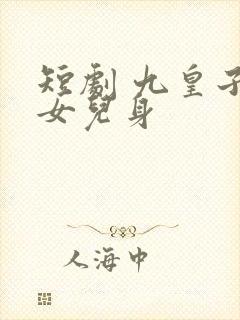 短劇 九皇子
女兒身
人海中